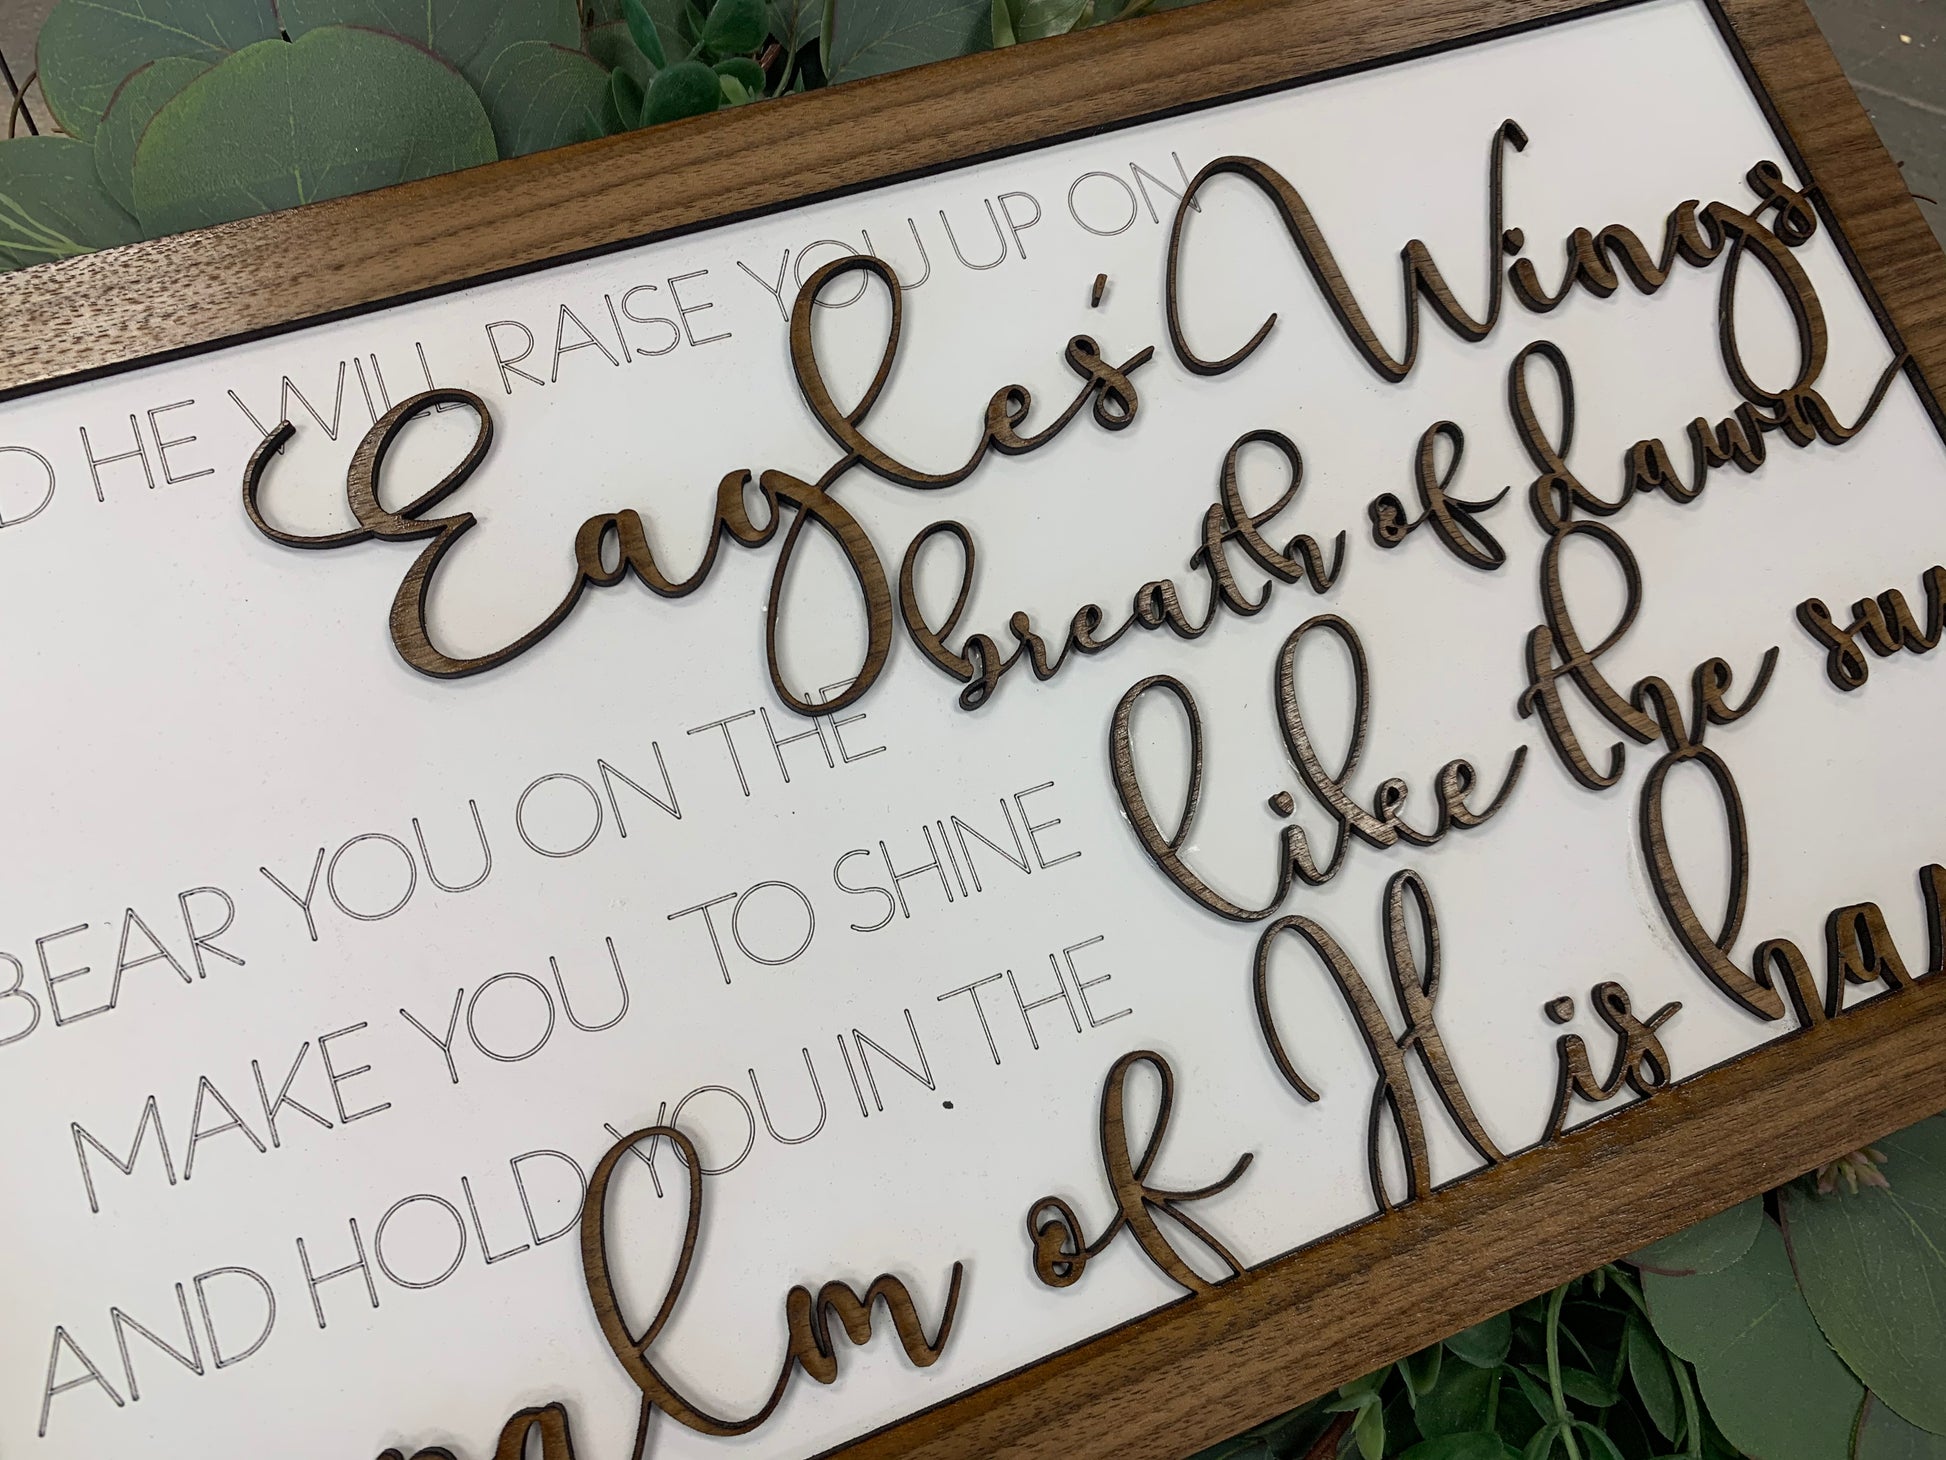 HE WILL RAISE YOU UP ON
Eagles' Wings
BEAR YOU ON THE breath of dawn
MAKE YOU TO SHINE like the
AND HOLD YOU IN THE
of His